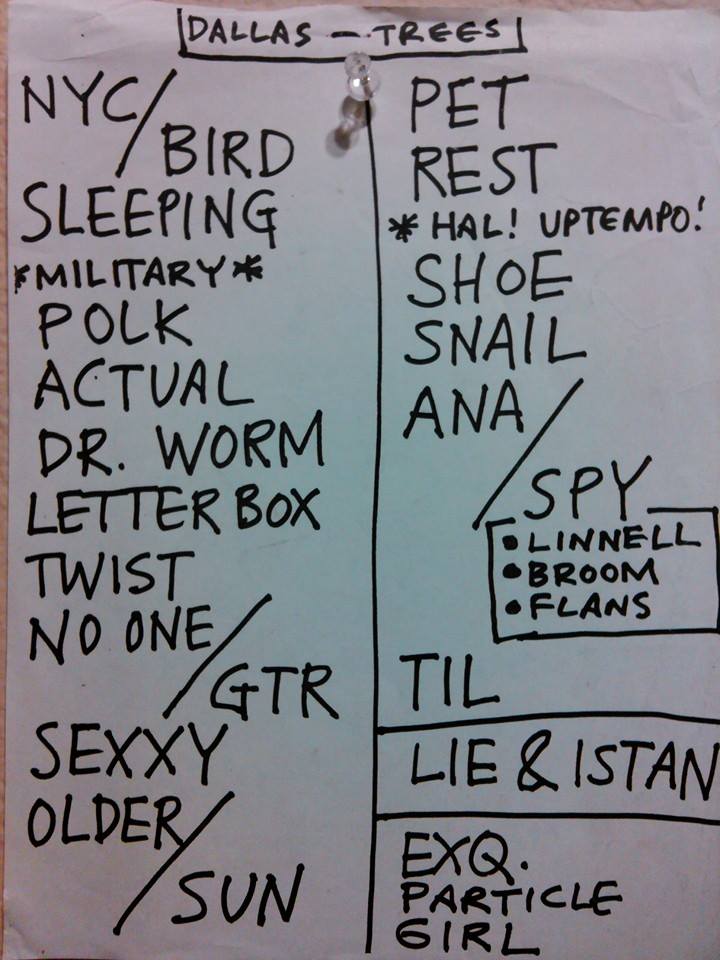 DALLAS - TREES
NYC/
BIRD
SLEEPING
*MILITARY*
POLK
ACTUAL
DR. WORM
LETTER BOX
TWIST
NO ONE/
GTR
SEXXY
OLDER/
SUN
PET
REST
* HAL! UPTEMPO!
SHOE
SNAIL
ANA/
SPY
• LINNELL
• BROOM
• FLANS
TIL
LIE & ISTAN
EXQ.
PARTICLE
GIRL